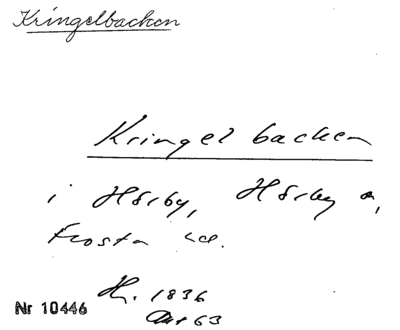 Kringelbacken
Kringelbacken
i Hörby, Hörby s,
Frosta hd.
H. 1836
Akt 63
Nr 10446